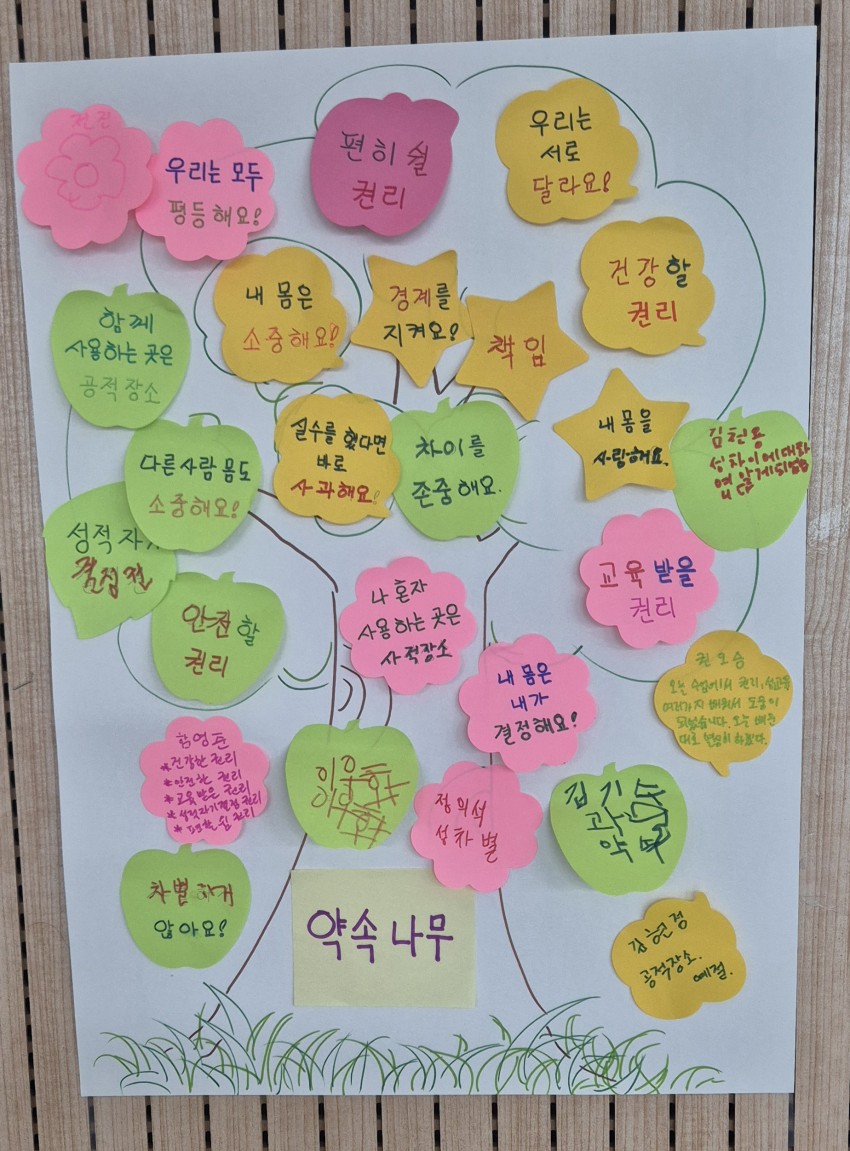 우리는 모두
평등해요!
편히 쉴
권리
우리는
서로
달라요!
내 몸은
소중해요!
경계를
지켜요!
책임
건강할
권리
함께
사용하는 곳은
공적장소
다른사람 몸도
소중해요!
실수를 했다면
바로
사과해요!
차이를
존중해요.
내 몸을
사랑해요.
성차이에대하
성적 자기
안전할
권리
나 혼자
사용하는 곳은
사적장소
교육 받을
권리
내 몸은
내가
결정해요!
권오승
오늘 수업에서 권리, 성교육
여러가지 배워서 도움이
되었습니다. 오늘 배운
대로
*건강한 권리
*안전한 권리
*교육받은 권리
*성적자기결정권리
*편할 쉴 권리
정의석
성차별
차별하거
않아요!
약속 나무
김현정
공적장소.
예절.